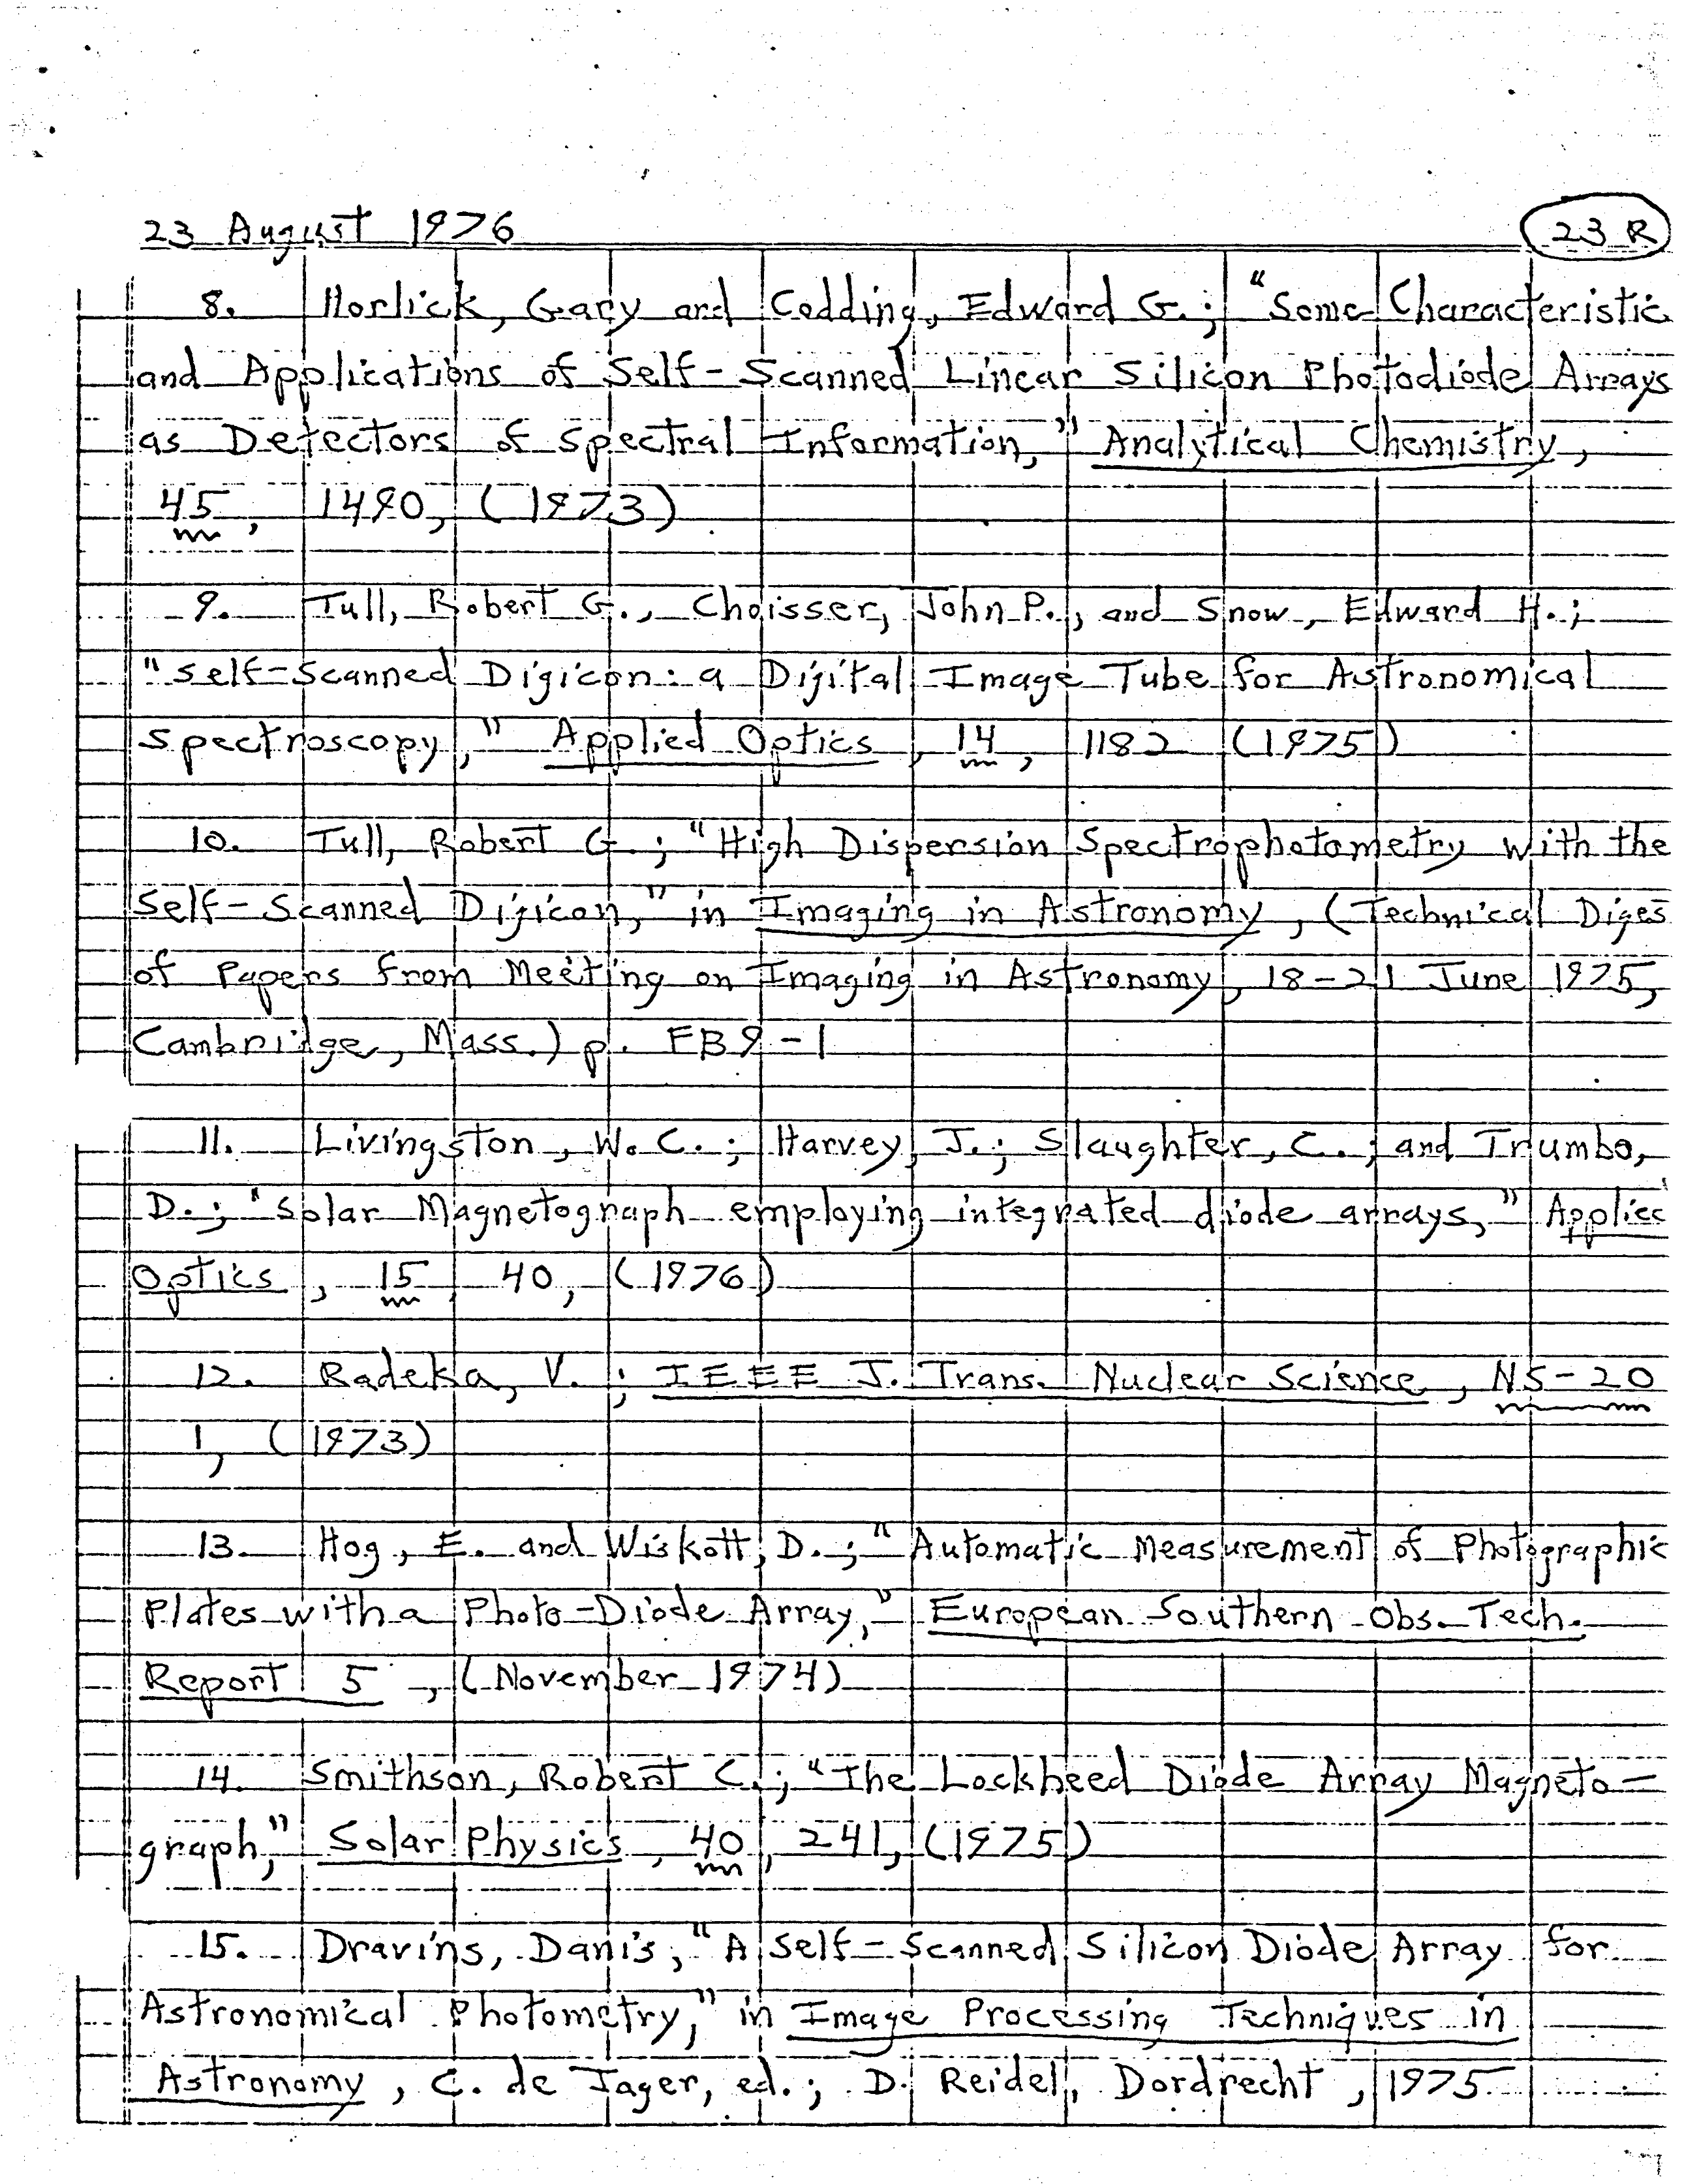 23 August 1976
23 R
8. Horlick, Gary and Codding, Edward G.; "Some Characteristic
and Applications of Self-Scanned Linear Silicon Photodiode Arrays
as Detectors of Spectral Information," Analytical Chemistry,
45, 1490, (1973)
9. Tull, Robert G., Choisser, John P., and Snow, Edward H.;
"Self-Scanned Digicon: a Digital Image Tube for Astronomical
Spectroscopy," Applied Optics, 14, 1182 (1975)
10. Tull, Robert G.; "High Dispersion Spectrophotometry with the
Self-Scanned Digicon," in Imaging in Astronomy, (Technical Diges
of Papers from Meeting on Imaging in Astronomy, 18-21 June 1975,
Cambridge, Mass.) p. FB9-1
11. Livingston, W. C.; Harvey, J.; Slaughter, C.; and Trumbo,
D.; "Solar Magnetograph employing integrated diode arrays," Applied
Optics, 15, 40, (1976)
12. Radeka, V.; IEEE J. Trans. Nuclear Science, NS-20
1, (1973)
13. Hog, E. and Wiskott, D.; "Automatic Measurement of Photographic
Plates with a Photo-Diode Array," European Southern Obs. Tech.
Report 5, (November 1974)
14. Smithson, Robert C.; "The Lockheed Diode Array Magneto-
graph," Solar Physics, 40, 241, (1975)
15. Dravins, Danis, "A Self-Scanned Silicon Diode Array for
Astronomical Photometry," in Image Processing Techniques in
Astronomy, C. de Jager, ed.; D. Reidel, Dordrecht, 1975